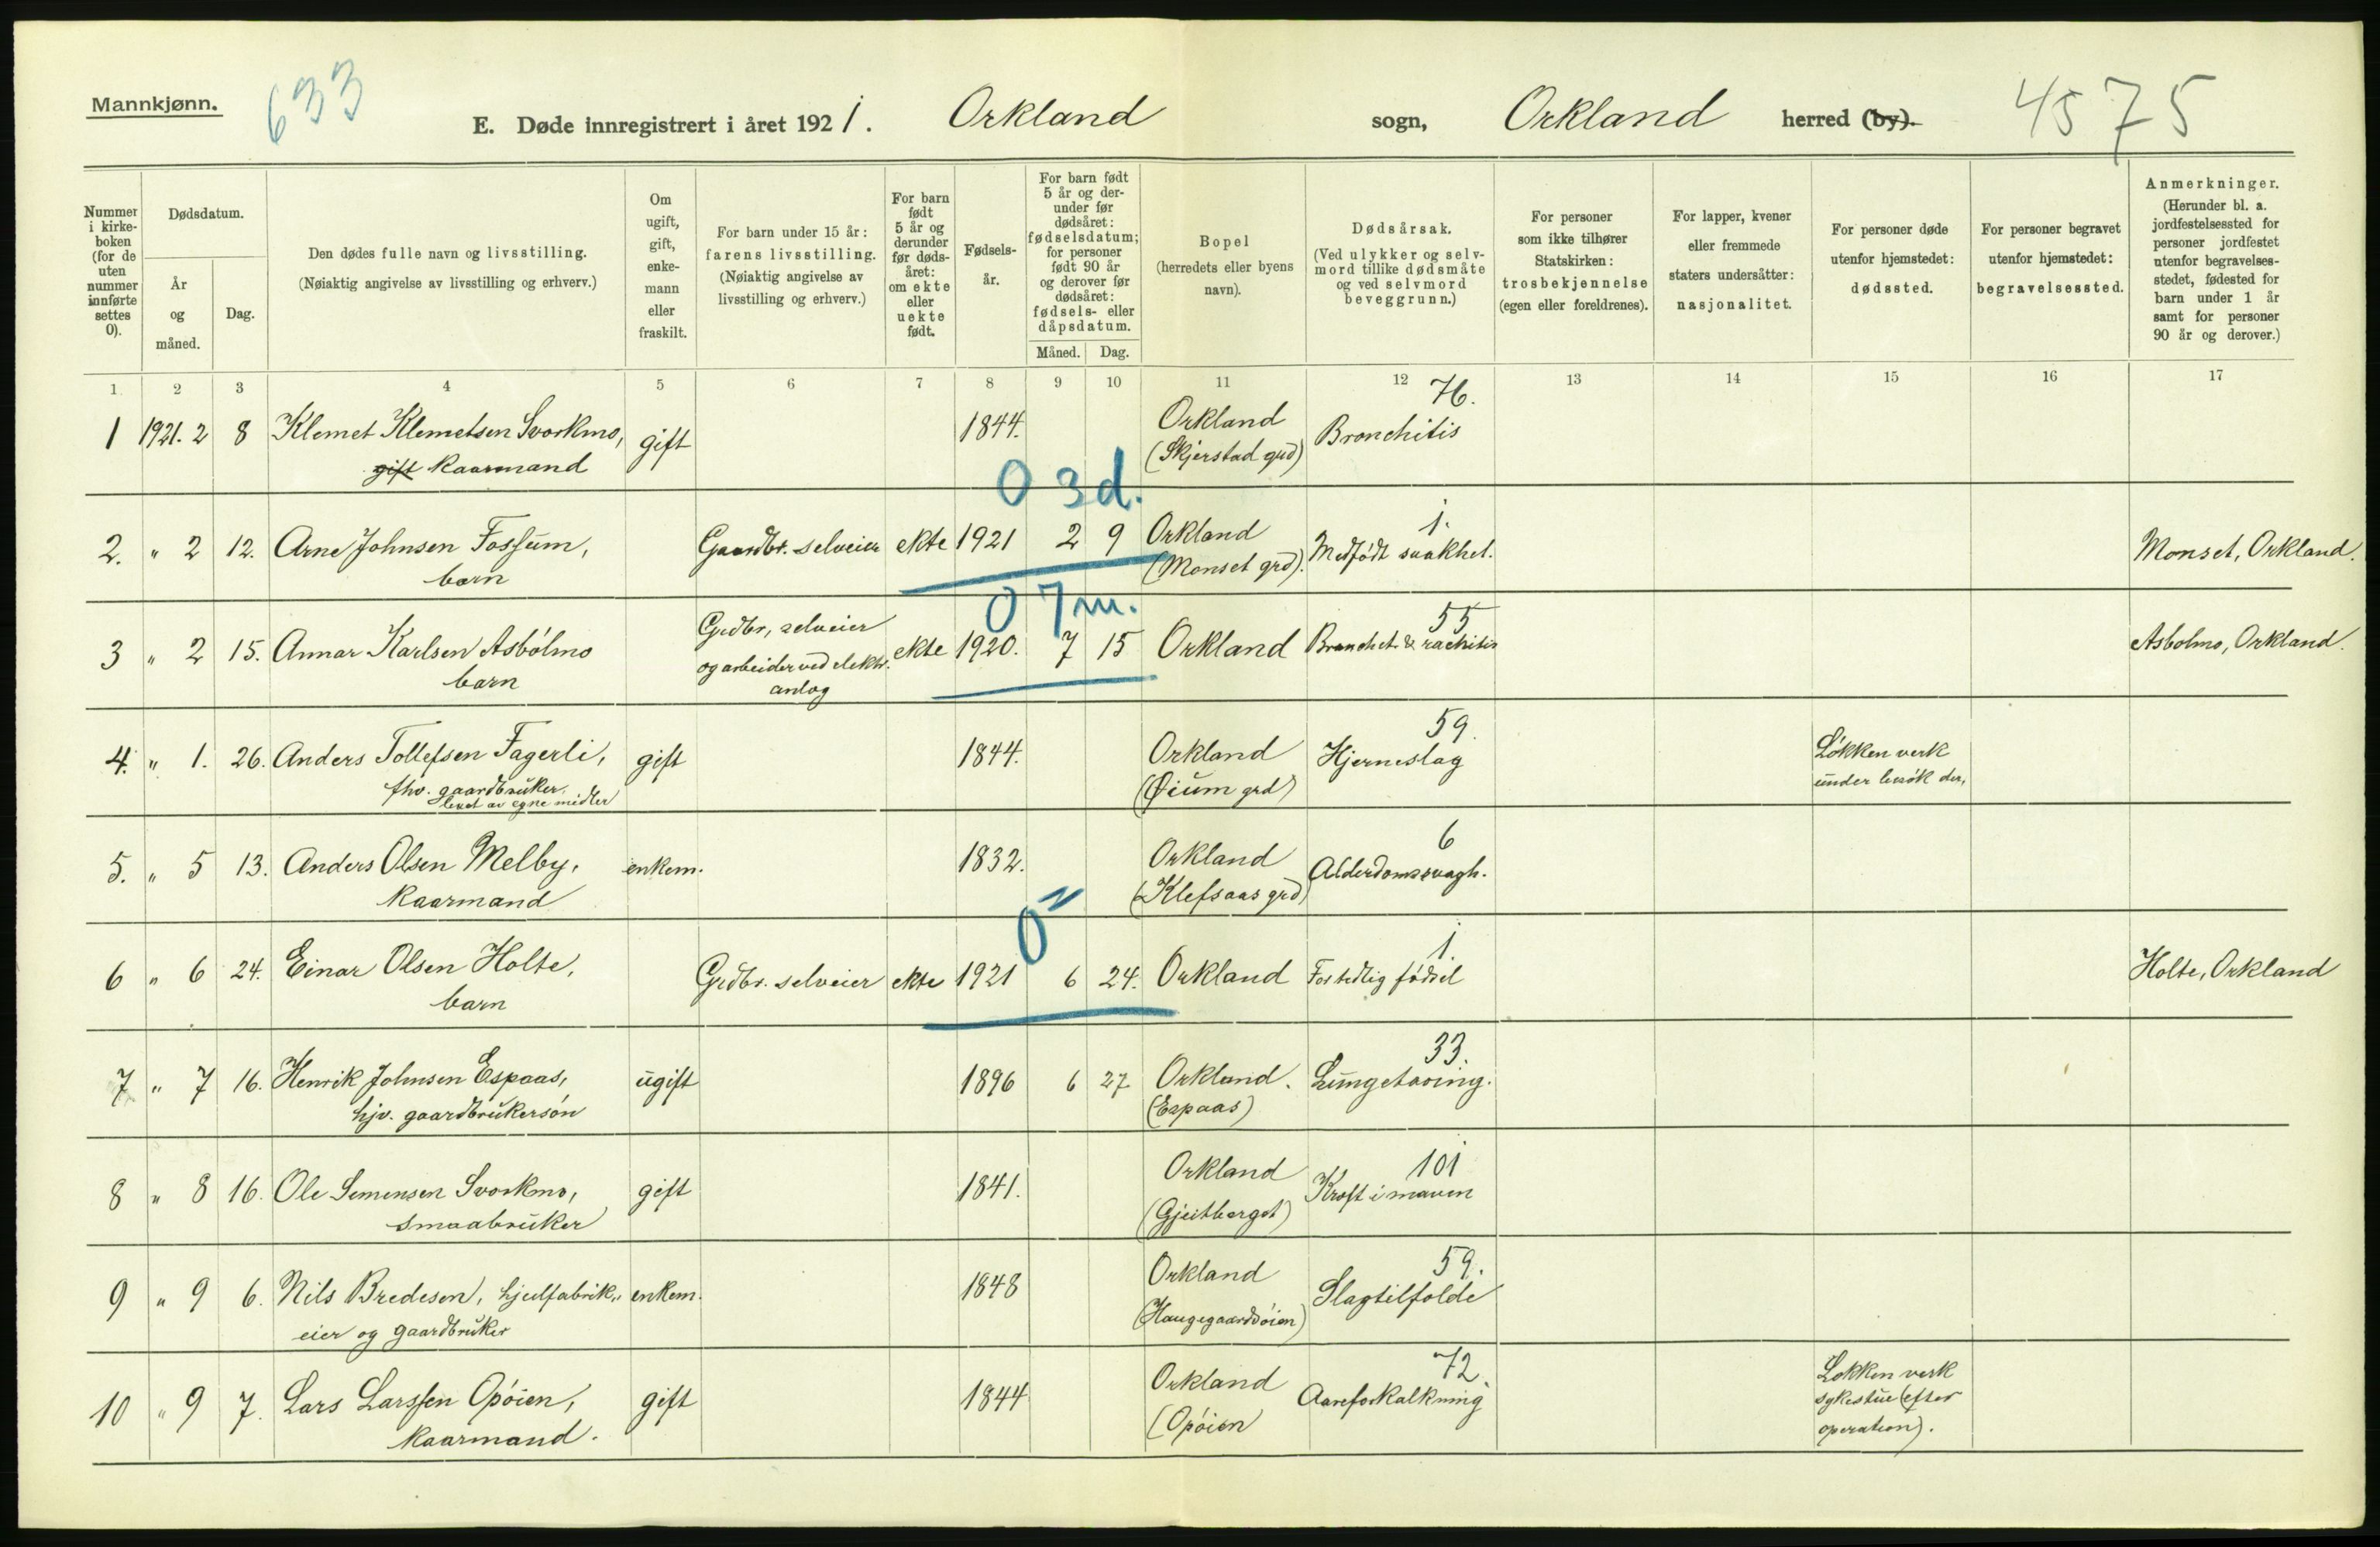 Mannkjønn.
633
E. Døde innregistrert i året 1921. Orkland sogn, Orkland herred (by).
4575
Nummer i kirkeboken (for de uten nummer innførte settes 0).
Dødsdatum.
År og måned.
Dag.
Den dødes fulle navn og livsstilling.
(Nøiaktig angivelse av livsstilling og erhverv.)
Om ugift, gift, enkemann eller fraskilt.
For barn under 15 år: farens livsstilling. (Nøiaktig angivelse av livsstilling og erhverv.)
For barn født 5 år og derunder før dødsåret: om ekte eller uekte født.
Fødselsår.
For barn født 5 år og derunder før dødsåret: fødselsdatum; for personer født 90 år og derover før dødsåret: fødsels- eller dåpsdatum.
Måned. Dag.
Bopel (herredets eller byens navn).
Dødsårsak. (Ved ulykker og selvmord tillike dødsmåte og ved selvmord beveggrunn.)
For personer som ikke tilhører Statskirken: trosbekjennelse (egen eller foreldrenes).
For lapper, kvener eller fremmede staters undersåtter: nasjonalitet.
For personer døde utenfor hjemstedet: dødssted.
For personer begravet utenfor hjemstedet: begravelsessted.
Anmerkninger. (Herunder bl. a. jordfestelsessted for personer jordfestet utenfor begravelsesstedet, fødested for barn under 1 år samt for personer 90 år og derover.)
1 2 3 4 5 6 7 8 9 10 11 12 13 14 15 16 17
76.
1 1921. 2 8 Klemet Klemetsen Svorkmo, gift 1844. Orkland Bronchitis
gift Kaarmand (Skjerstad grd)
0 3 d.
1.
2. " 2 12. Arne Johnsen Fossum, Gaardbr. selveier ekte 1921 2 9 Orkland Medfødt svakhet. Monset, Orkland.
barn (Monset grd).
0 7 m.
55
3 " 2 15. Annar Karlsen Asbölmo Grdbr, selveier ekte 1920. 7 15 Orkland Bronchit. & rachitis Asbolmo, Orkland.
barn og arbeider ved elektr. anlæg
59.
4. " 1. 26. Anders Tollefsen Fagerli, gift 1844. Orkland Hjerneslag Løkken verk
fhv. gaardbruker, (Øium grd) under besøk der,
levet av egne midler
6
5. " 5 13. Anders Olsen Melby, enkem. 1832. Orkland Alderdomssvagh.
Kaarmand (Klefsaas grd)
0"
1.
6 " 6 24. Einar Olsen Holte, Grdbr. selveier ekte 1921 6 24. Orkland For tidlig fødsel Holte, Orkland
barn
33.
7 " 7 16. Henrik Johnsen Espaas, ugift 1896 6 27 Orkland. Lungetæring.
hjv. gaardbrukersøn (Espaas)
101
8 " 8 16. Ole Simensen Svorkmo, gift 1841. Orkland Kræft i maven
smaabruker (Gjeitberget)
59.
9 " 9 6. Nils Bredesen, hjulfabrik- enkem. 1848 Orkland Slagtilfælde
eier og gaardbruker (Haugegaardsøien)
72.
10 " 9 7. Lars Larssen Opøien, gift 1844 Orkland Aareforkalkning Løkken verk
Kaarmand. (Opøien sykestue (efter
operation).